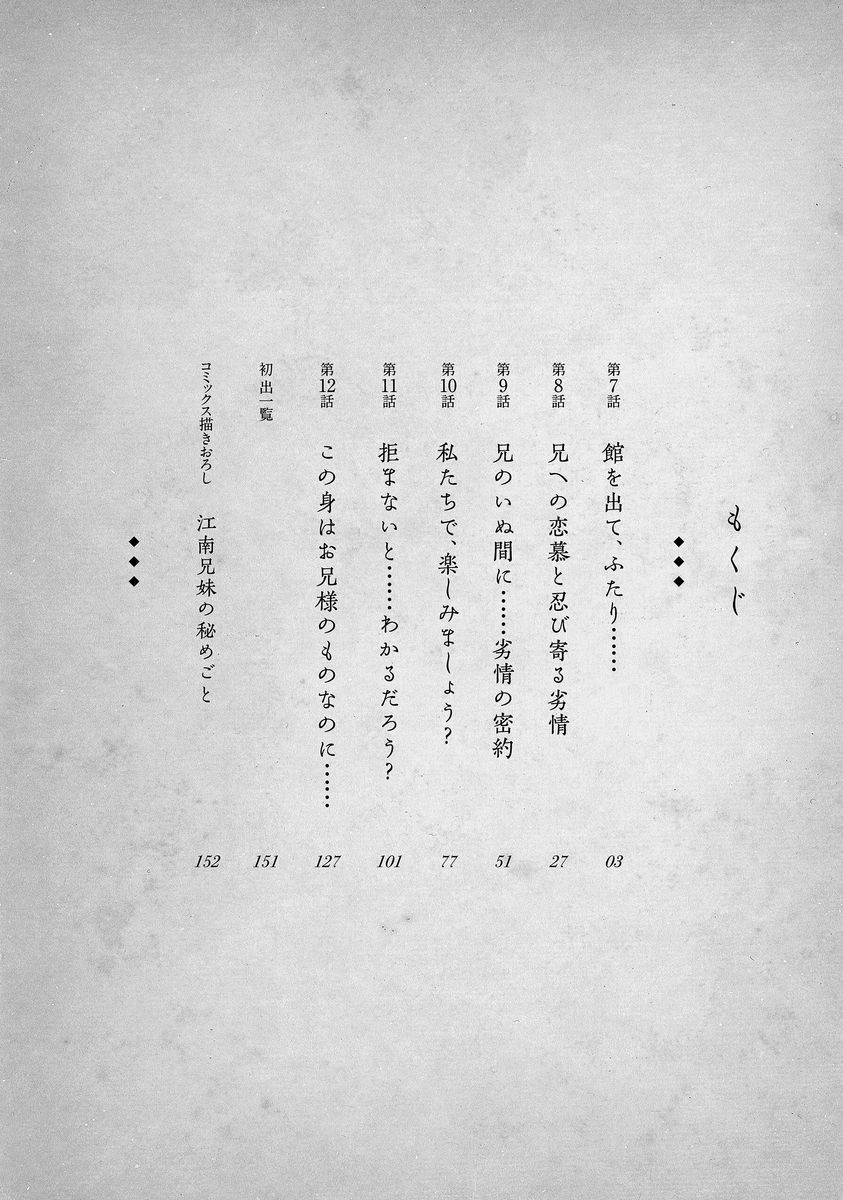 もくじ
◆◆◆
第7話 館を出て、ふたり…… 03
第8話 兄への恋慕と忍び寄る劣情 27
第9話 兄のいぬ間に……劣情の密約 51
第10話 私たちで、楽しみましょう? 77
第11話 拒まないと……わかるだろう? 101
第12話 この身はお兄様のものなのに…… 127
初出一覧 151
コミックス描きおろし 江南兄妹の秘めごと 152
◆◆◆